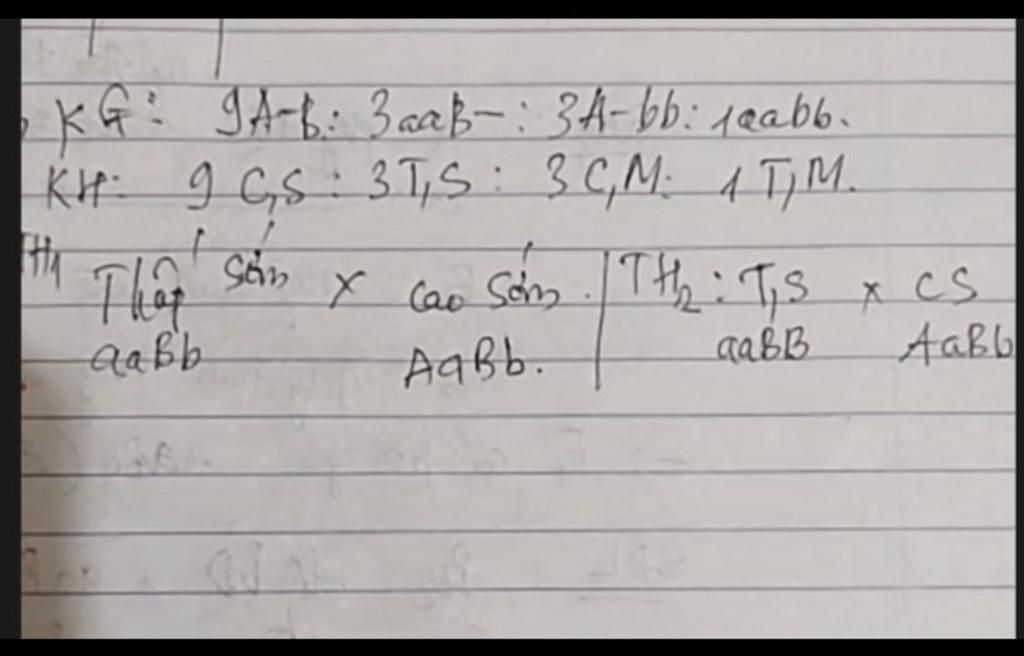 KG: 9A-B: 3aaB-: 3A-bb: 1aabb.
KH: 9 C,S : 3T,S : 3 C,M: 1 T,M.
TH1 Thấp sớm x cao sớm. | TH2: T,S x CS
aaBb AaBb. aaBB AaBb